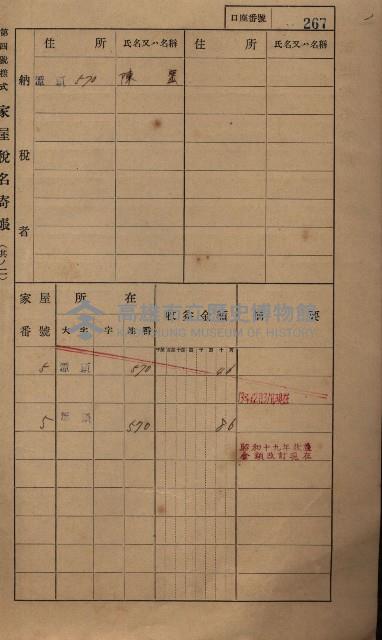 口座番號 267
第四號樣式 家屋稅名寄帳 (其ノ二)
納稅者
住所 氏名又ハ名稱 住所 氏名又ハ名稱
頭 570 陳
家屋番號 所在 大字 字 地番 收益金額 摘要
高雄市立歷史博物館
KAOHSIUNG MUSEUM OF HISTORY
5 頭 570 46
5 頭 570 86
昭和十九年收益
金額改訂現在